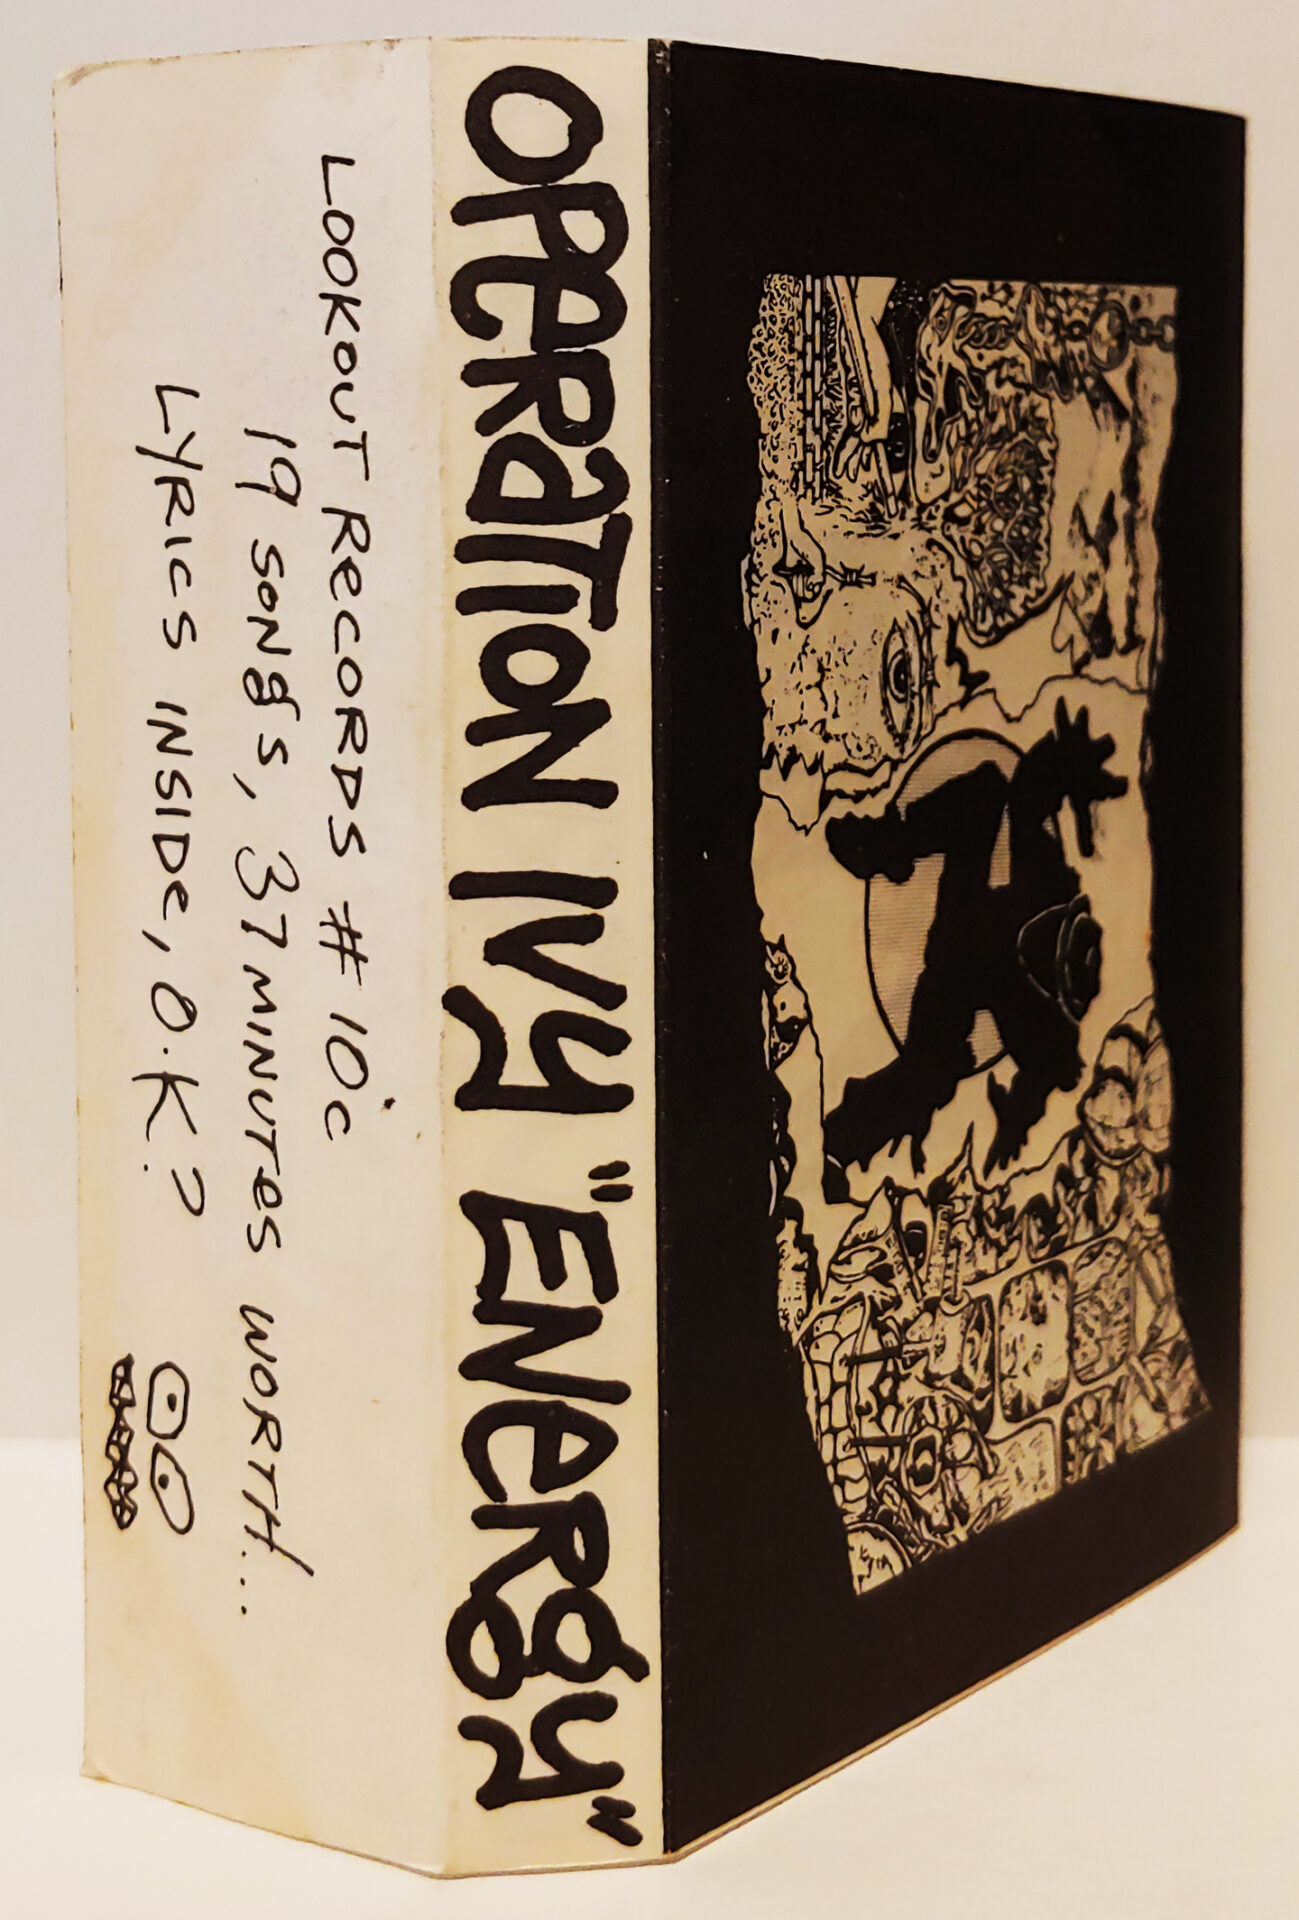 OPERATION IVY "ENERGY"
LOOKOUT RECORDS #10c
19 SONGS, 37 MINUTES WORTH...
LYRICS INSIDE, O.K?